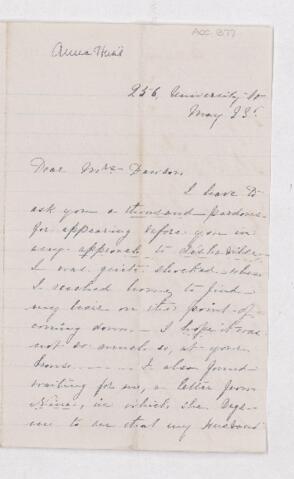 ACC. 877
Anna
256, University St
May 23rd
Dear Mrs Dawson
I have to
ask you a thousand pardons
for appearing before you in
any approach to
I was quite shocked when
I reached home, to find
my hair on the point of
coming down — I hope it was
not so much so, at your
house. — I also found
waiting for me, a letter from
Nina, in which she begs
me to see that my husband